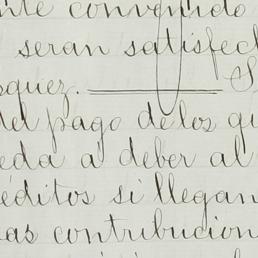 nte convenido
seran satisfec
squez. S
del pago de los qu
eda a deber al
éditos si llegan
as contribucion